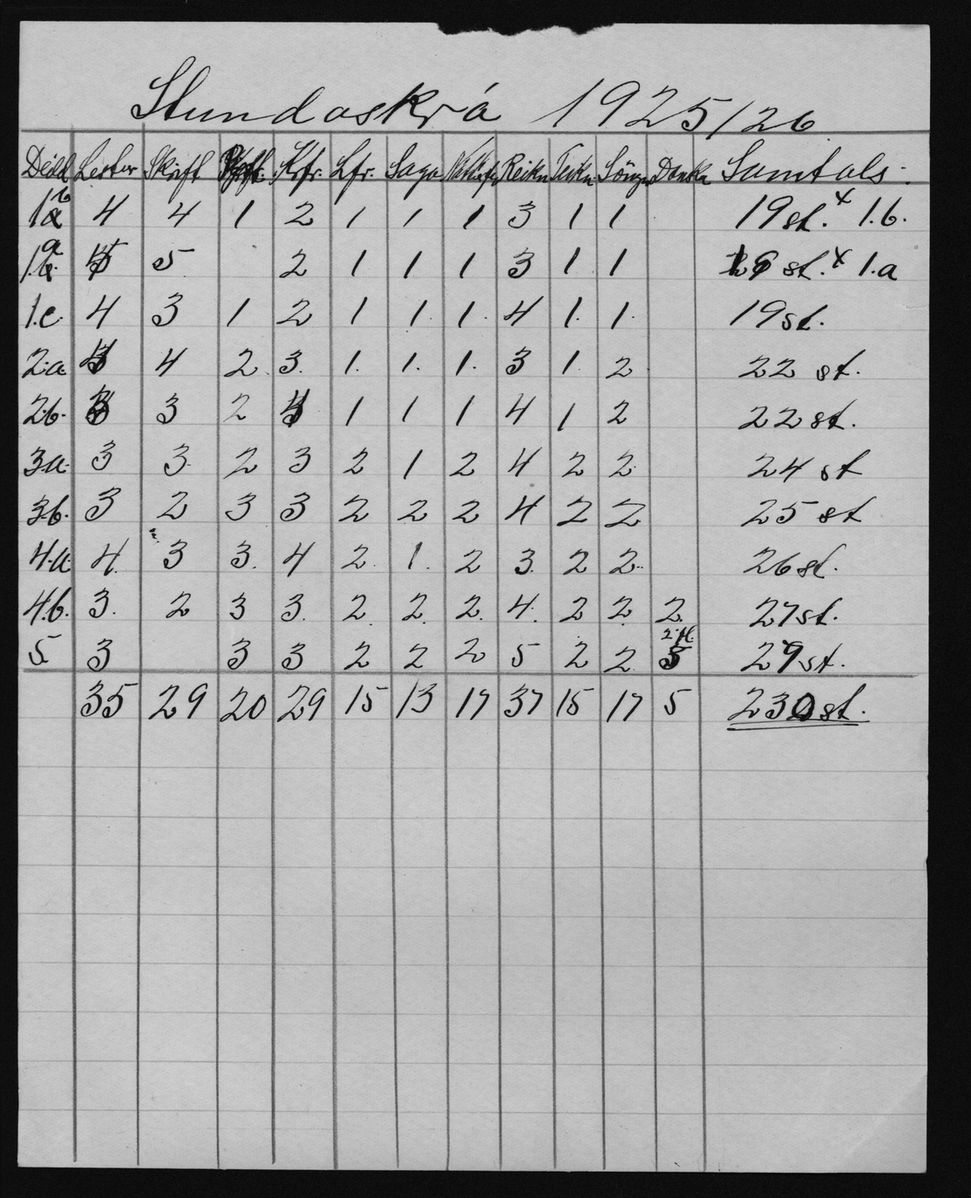 Stundaskrá 1925/26
Deild Lestur Skrift Kr.fr. L.fr. Saga Reikn Teikn Söngu Danska Samtals.
1b 4 4 1 2 1 1 1 3 1 1 19 st. x 1.b.
1.a 5 5 2 1 1 1 3 1 1 19 st. x 1.a
1.c. 4 3 1 2 1 1. 1. 4 1. 1. 19 st.
2.a 4 4 2 3. 1. 1. 1. 3 1. 2 22 st.
2.b. 3 3 2 4 1 1 1 4 1 2 22 st.
3.a. 3 3 2 3 2 1 2 4 2 2 24 st
3.b. 3 2 3 3 2 2 2 4 2 2 25 st
4.a 4. 3 3. 4 2 1. 2 3. 2 2 26 st.
4.b. 3. 2 3 3. 2 2. 2. 4. 2 2 2. 27 st.
2.fl.
5. 3 3 3 2 2 2 5 2 2 3 29 st.
35 29 20 29 15 13 17 37 15 17 5 230 st.